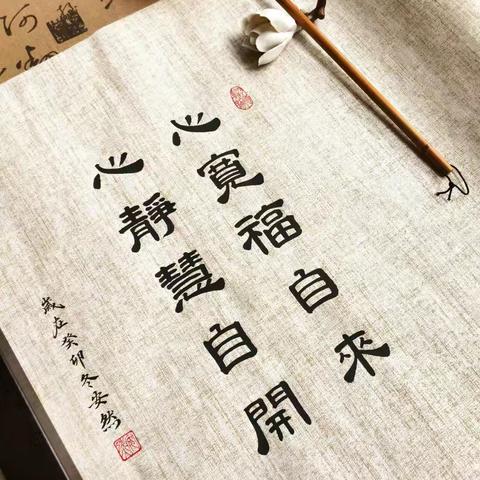 心寬福自來
心靜慧自開
歲在癸卯冬安然